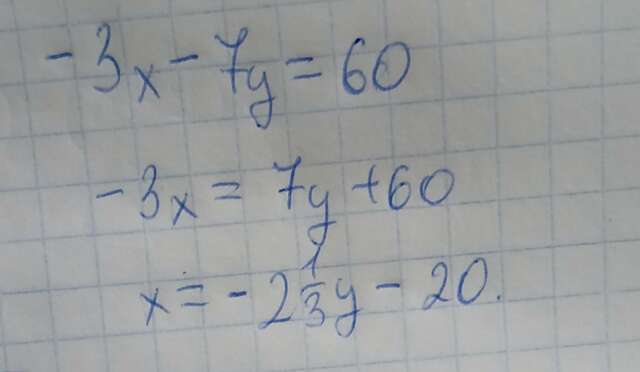 -3x-7y=60
-3x=7y+60
x=-2 1/3y-20.